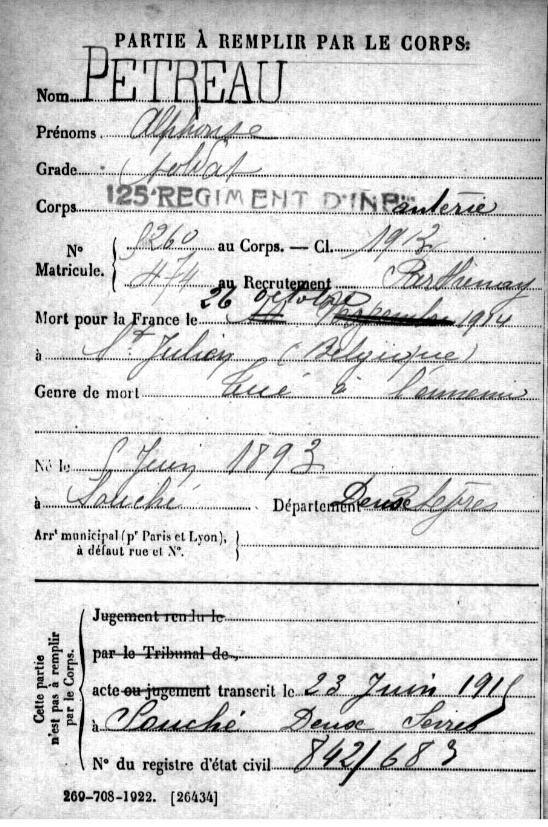 PARTIE À REMPLIR PAR LE CORPS:
Nom PETREAU
Prénoms Alphonse
Grade soldat
Corps 125e REGIMENT D'INFanterie
N° Matricule. { 8260 au Corps. — Cl. 1913
474 au Recrutement Parthenay
26 octobre
Mort pour la France le 1914
à St Julien (Belgique)
Genre de mort tué à l'ennemi
Né le Juin 1893
à Souché Département Deux Sèvres
Arrt municipal (pr Paris et Lyon), à défaut rue et N°. }
Cette partie n'est pas à remplir par le Corps.
Jugement rendu le
par le Tribunal de
acte ou jugement transcrit le 23 Juin 1915
à Souché Deux Sèvres
N° du registre d'état civil 842/683
269-708-1922. [26434]